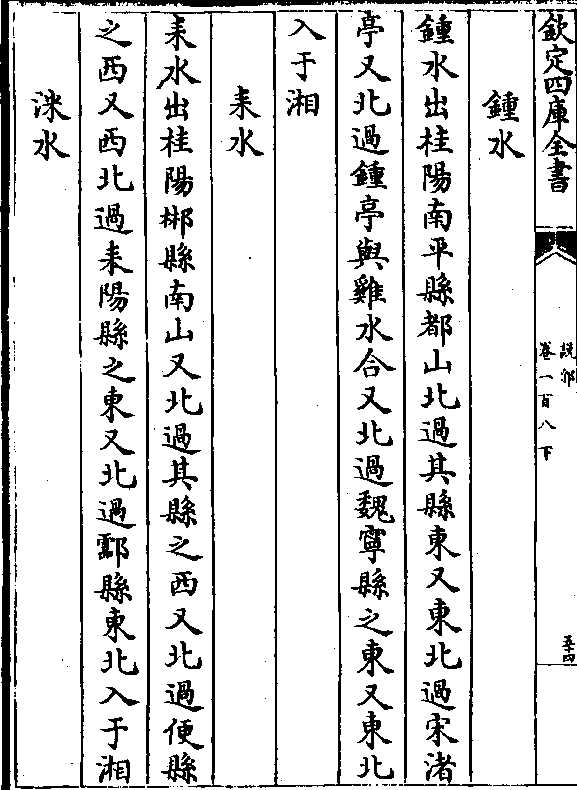 欽定四庫全書
説郛
卷一百八下
五十四
鍾水
鍾水出桂陽南平縣都山北過其縣東又東北過宋渚
亭又北過鍾亭與雞水合又北過魏寧縣之東又東北
入于湘
耒水
耒水出桂陽郴縣南山又北過其縣之西又北過便縣
之西又西北過耒陽縣之東又北過酃縣東北入于湘
洣水